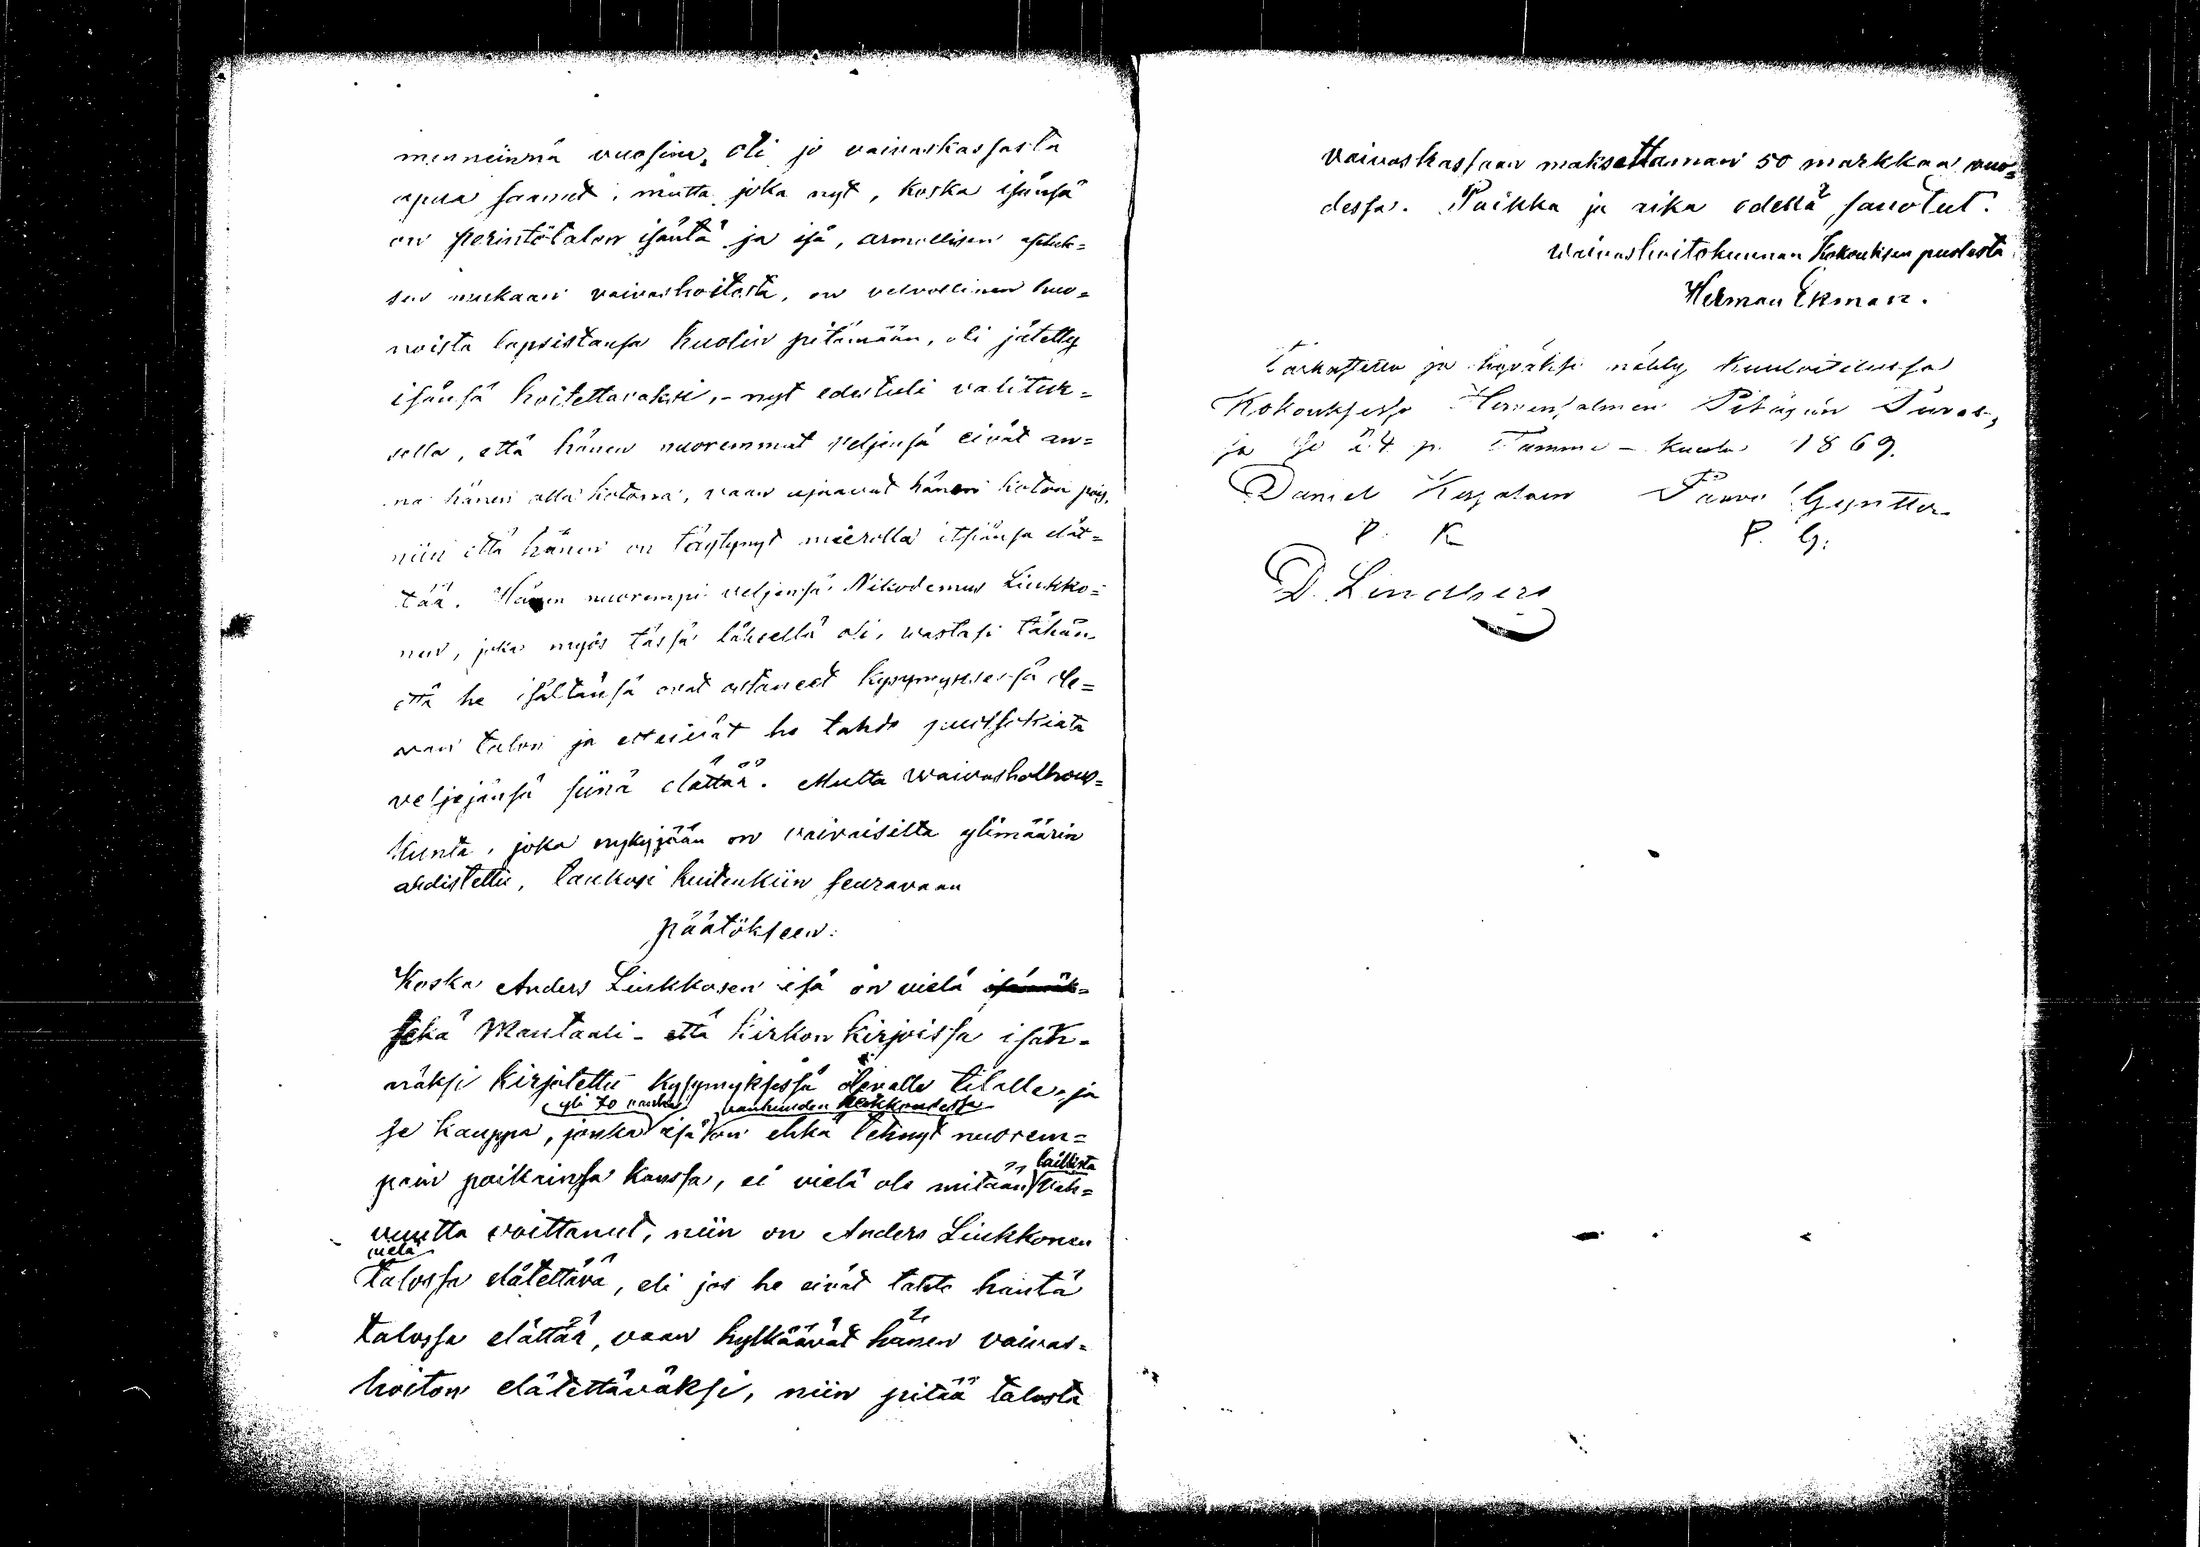 menneinnä vuosina, oli jo vaivaskassasta
apua saanut, mutta joka nyt, koska isänsä
on perintötalon isäntä ja isä, armollisen asetuk=
sen mukaan vaivashoitosta, on velvollinen huo=
noista lapsistansa huolen pitämään, oli jätetty
isänsä hoitettavaksi, - nyt edestuli valituk=
sella, että hänen nuoremmat veljensä eivät an=
na hänen olla kotona, vaan ajaavat hänen koton pois,
niin että hänen on täytynyt mierolla itsiänsä elät=
tää. Hänen nuorempi veljensä Nikodemus Liukko=
nen, joka myös tässä läheellä oli, wastasi tähän
että he isältänsä ovat ostaneet kysymyksessä ole=
van talon ja etteivät he tahdo puolisokiata
veljejänsä siinä elättää. Mutta waivasholhous=
kunta, joka nykyjään on vaivaisilta ylimäärin
ahdistettu, laukesi kuitenkiin seuraavaan
päätökseen:
Koska Anders Liukkosen isä on vielä
sekä Mantaali- että kirkon kirjoissa isän=
näksi kirjotettu kysymyksessä olevalle tilalle, ja
yli 70 vanha vanhuuden heikkoudessa
se kauppa, jonka isä on ehkä tehnyt nuorem=
pain poikainsa kanssa, ei vielä ole mitään laillista vah=
vuutta voittanut, niin on Anders Liukkonen
vielä
talossa elätettävä, eli jos he eivät tahdo häntä
talossa elättää, vaan hylkäävät hänen vaivas=
hoiton elätettäväksi, niin pitää talosta
vaivaskassaan maksettaman 50 markkaa vuo=
dessa. Paikka ja aika edellä sanotut.
Waivashoitokunnan Kokouksen puolesta
Herman Ekman.
Tarkastettu ja hyväksi nähty Kuuloitetussa
Kokouksessa Pitäjän
ja se 24 p. Tammi-kuuta 1869.
Daniel Paavo Gyntter
P. K P. G:
D. Lindberg